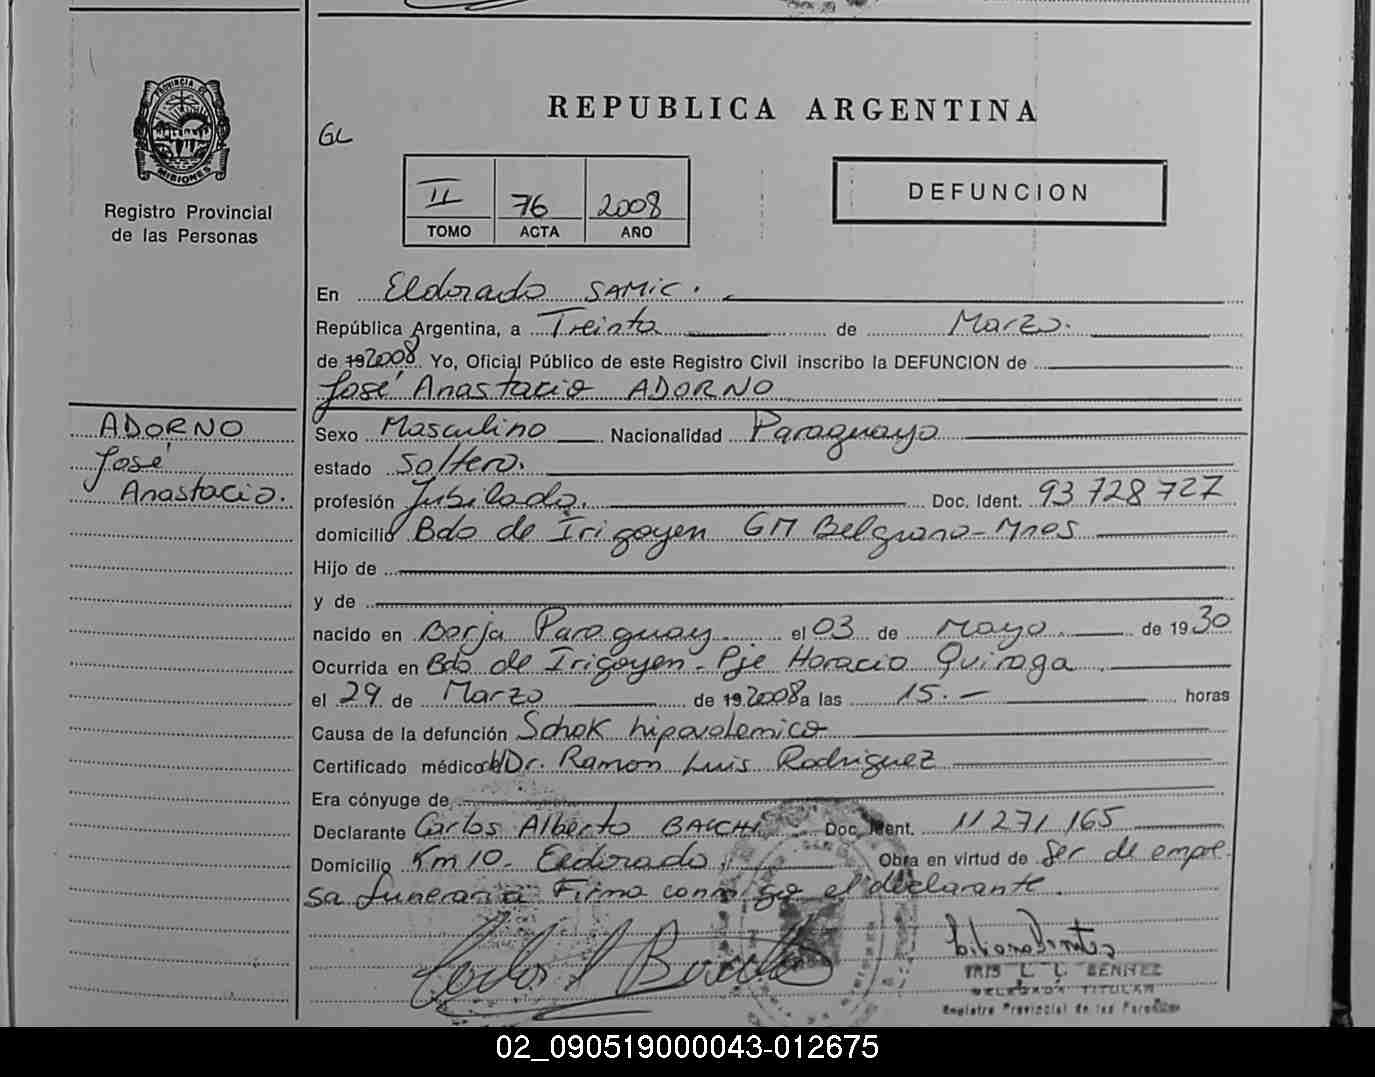 PROVINCIA DE
MISIONES
Registro Provincial
de las Personas
REPUBLICA ARGENTINA
GL
II 76 2008
TOMO ACTA AÑO
DEFUNCION
En Eldorado SAMIC.
República Argentina, a Treinta de Marzo.
de 19 2008 Yo, Oficial Público de este Registro Civil inscribo la DEFUNCION de
José Anastacio ADORNO
ADORNO
José
Anastacio.
Sexo Masculino Nacionalidad Paraguaya
estado Soltero.
profesión Jubilado. Doc. Ident. 93 728 727
domicilio Bdo de Irigoyen GM Belgrano - Mnes
Hijo de
y de
nacido en Borja Paraguay. el 03 de Mayo. de 19 30
Ocurrida en Bdo de Irigoyen - Pje Horacio Quiroga
el 29 de Marzo de 19 2008 a las 15.- horas
Causa de la defunción Schok hipovolemico
Certificado médico del Dr. Ramon Luis Rodriguez
Era cónyuge de
Declarante Carlos Alberto BACCHI Doc. Ident. 11 271 165
Domicilio Km 10 - Eldorado. Obra en virtud de Ser de empre
sa funeraria Firma conmigo el declarante.
IRIS L. C. BENITEZ
DELEGADA TITULAR
Registro Provincial de las Personas
02_090519000043-012675